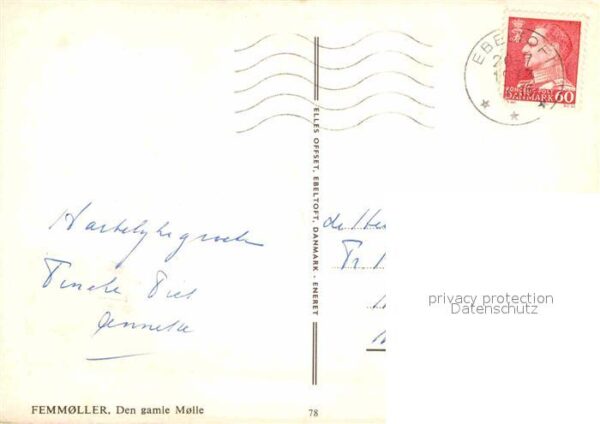 EBELTOFT
DANMARK 60
ELLES OFFSET, EBELTOFT, DANMARK - ENERET
Hartelijke groeten
Tineke Piet
Anneke
de He
privacy protection
Datenschutz
FEMMØLLER, Den gamle Mølle
78